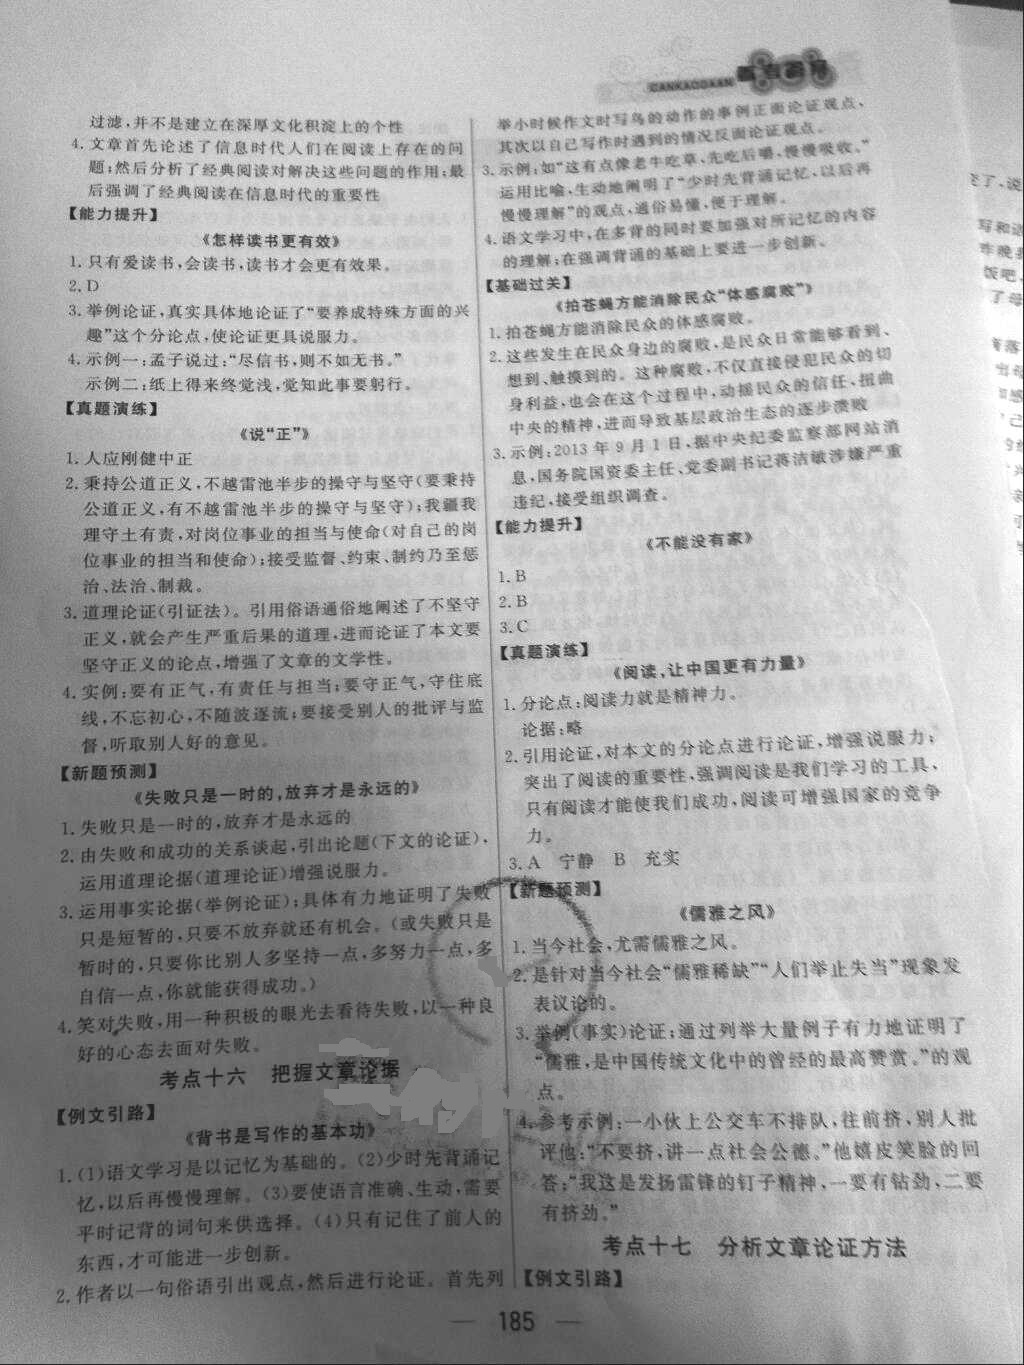 CANKAODAAN
过滤,并不是建立在深厚文化积淀上的个性
4.文章首先论述了信息时代人们在阅读上存在的问
题;然后分析了经典阅读对解决这些问题的作用;最
后强调了经典阅读在信息时代的重要性
【能力提升】
《怎样读书更有效》
1.只有爱读书,会读书,读书才会更有效果。
2.D
3.举例论证,真实具体地论证了“要养成特殊方面的兴
趣”这个分论点,使论证更具说服力。
4.示例一:孟子说过:“尽信书,则不如无书。”
示例二:纸上得来终觉浅,觉知此事要躬行。
【真题演练】
《说“正”》
1.人应刚健中正
2.秉持公道正义,不越雷池半步的操守与坚守(要秉持
公道正义,有不越雷池半步的操守与坚守);我疆我
理守土有责,对岗位事业的担当与使命(对自己的岗
位事业的担当和使命);接受监督、约束、制约乃至惩
治、法治、制裁。
3.道理论证(引证法)。引用俗语通俗地阐述了不坚守
正义,就会产生严重后果的道理,进而论证了本文要
坚守正义的论点,增强了文章的文学性。
4.实例:要有正气,有责任与担当;要守正气,守住底
线,不忘初心,不随波逐流;要接受别人的批评与监
督,听取别人好的意见。
【新题预测】
《失败只是一时的,放弃才是永远的》
1.失败只是一时的,放弃才是永远的
2.由失败和成功的关系谈起,引出论题(下文的论证),
运用道理论据(道理论证)增强说服力。
3.运用事实论据(举例论证);具体有力地证明了失败
只是短暂的,只要不放弃就还有机会。(或失败只是
暂时的,只要你比别人多坚持一点,多努力一点,多
自信一点,你就能获得成功。)
4.笑对失败,用一种积极的眼光去看待失败,以一种良
好的心态去面对失败。
考点十六 把握文章论据
【例文引路】
《背书是写作的基本功》
1.(1)语文学习是以记忆为基础的。(2)少时先背诵记
忆,以后再慢慢理解。(3)要使语言准确、生动,需要
平时记背的词句来供选择。(4)只有记住了前人的
东西,才可能进一步创新。
2.作者以一句俗语引出观点,然后进行论证。首先列
举小时候作文时写鸟的动作的事例正面论证观点、
其次以自己写作时遇到的情况反面论证观点。
3.示例:如“这有点像老牛吃草,先吃后嚼,慢慢吸收。”
运用比喻,生动地阐明了“少时先背诵记忆,以后再
慢慢理解”的观点,通俗易懂,便于理解。
4.语文学习中,在多背的同时要加强对所记忆的内容
的理解;在强调背诵的基础上要进一步创新。
【基础过关】
《拍苍蝇方能消除民众“体感腐败”》
1.拍苍蝇方能消除民众的体感腐败。
2.这些发生在民众身边的腐败,是民众日常能够看到、
想到、触摸到的。这种腐败,不仅直接侵犯民众的切
身利益,也会在这个过程中,动摇民众的信任,扭曲
中央的精神,进而导致基层政治生态的逐步溃败
3.示例:2013年9月1日,据中央纪委监察部网站消
息,国务院国资委主任、党委副书记蒋洁敏涉嫌严重
违纪,接受组织调查。
【能力提升】
《不能没有家》
1.B
2.B
3.C
【真题演练】
《阅读,让中国更有力量》
1.分论点:阅读力就是精神力。
论据:略
2.引用论证,对本文的分论点进行论证,增强说服力;
突出了阅读的重要性,强调阅读是我们学习的工具、
只有阅读才能使我们成功,阅读可增强国家的竞争
力。
3.A 宁静 B 充实
【新题预测】
《儒雅之风》
1.当今社会,尤需儒雅之风。
2.是针对当今社会“儒雅稀缺”“人们举止失当”现象发
表议论的。
3.举例(事实)论证;通过列举大量例子有力地证明了
“儒雅,是中国传统文化中的曾经的最高赞赏。”的观
点。
4.参考示例:一小伙上公交车不排队,往前挤,别人批
评他:“不要挤,讲一点社会公德。”他嬉皮笑脸的回
答:“我这是发扬雷锋的钉子精神,一要有钻劲,二要
有挤劲。”
考点十七 分析文章论证方法
【例文引路】
185